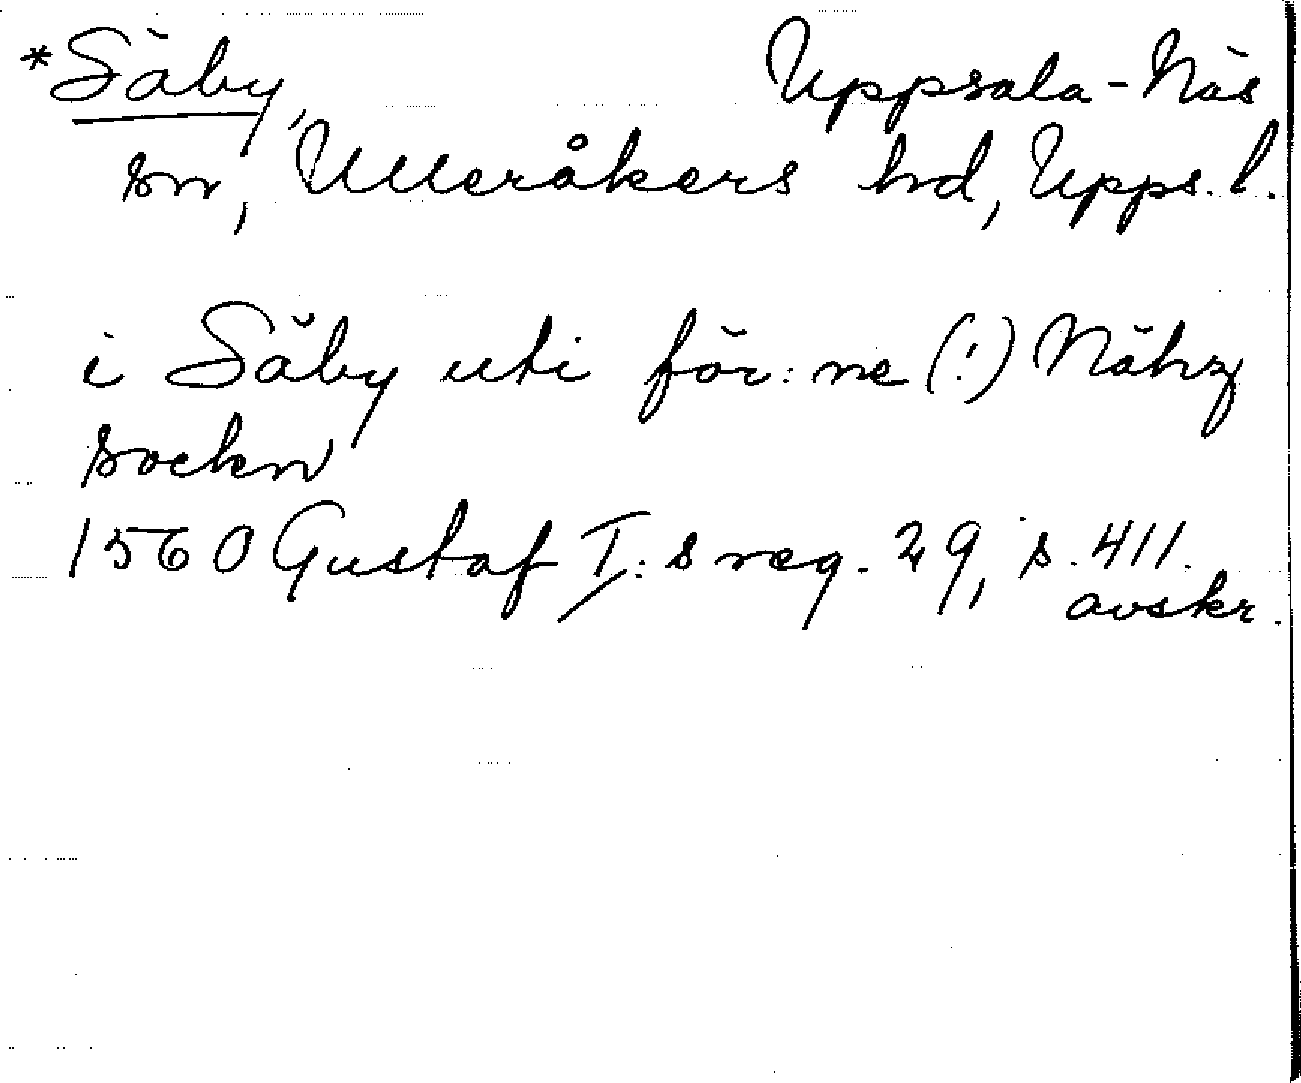 *Säby, Uppsala-Näs
sn, Ulleråkers hd, Upps. l.
i Säby uti för:ne (!) Nähz
sockn
1560 Gustaf I:s reg. 29, s. 411.
avskr.